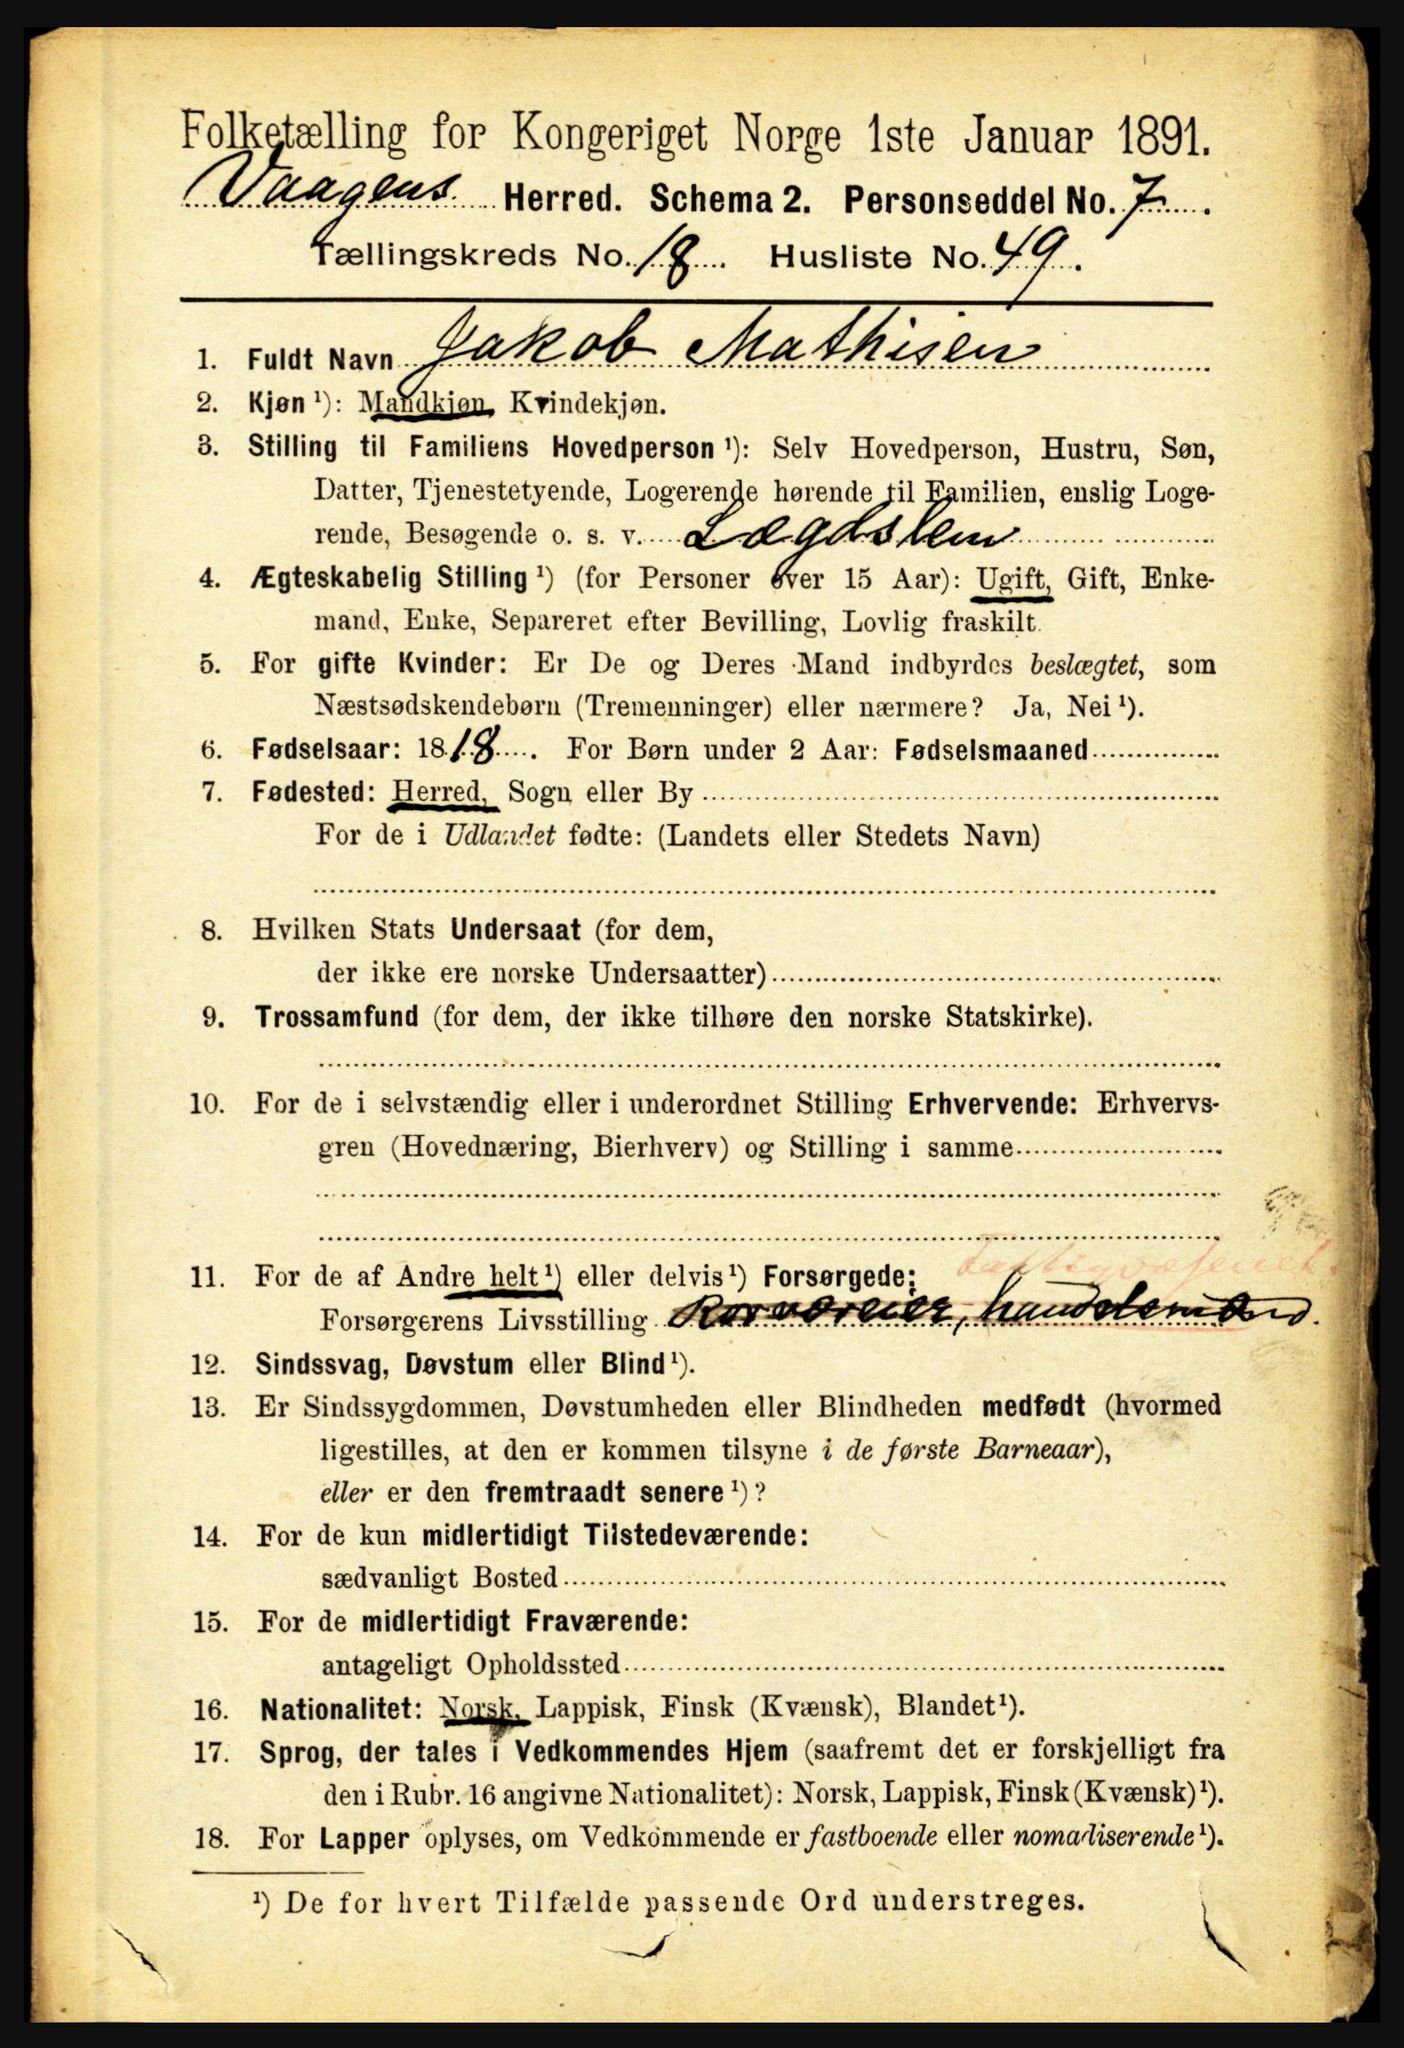 Folketælling for Kongeriget Norge 1ste Januar 1891.
Vaagens Herred. Schema 2. Personseddel No. 7.
Tællingskreds No. 18. Husliste No. 49.
1. Fuldt Navn Jakob Mathisen
2. Kjøn ¹): Mandkjøn, Kvindekjøn.
3. Stilling til Familiens Hovedperson ¹): Selv Hovedperson, Hustru, Søn,
Datter, Tjenestetyende, Logerende hørende til Familien, enslig Loge-
rende, Besøgende o. s. v. Lægdslem
4. Ægteskabelig Stilling ¹) (for Personer over 15 Aar): Ugift, Gift, Enke-
mand, Enke, Separeret efter Bevilling, Lovlig fraskilt.
5. For gifte Kvinder: Er De og Deres Mand indbyrdes beslægtet, som
Næstsødskendebørn (Tremenninger) eller nærmere? Ja, Nei ¹).
6. Fødselsaar: 1818. For Børn under 2 Aar: Fødselsmaaned
7. Fødested: Herred, Sogn eller By
For de i Udlandet fødte: (Landets eller Stedets Navn)
8. Hvilken Stats Undersaat (for dem,
der ikke ere norske Undersaatter)
9. Trossamfund (for dem, der ikke tilhøre den norske Statskirke).
10. For de i selvstændig eller i underordnet Stilling Erhvervende: Erhvervs-
gren (Hovednæring, Bierhverv) og Stilling i samme
11. For de af Andre helt ¹) eller delvis ¹) Forsørgede: Fattigvæsenet.
Forsørgerens Livsstilling handelsmand.
12. Sindssvag, Døvstum eller Blind ¹).
13. Er Sindssygdommen, Døvstumheden eller Blindheden medfødt (hvormed
ligestilles, at den er kommen tilsyne i de første Barneaar),
eller er den fremtraadt senere ¹)?
14. For de kun midlertidigt Tilstedeværende:
sædvanligt Bosted
15. For de midlertidigt Fraværende:
antageligt Opholdssted
16. Nationalitet: Norsk, Lappisk, Finsk (Kvænsk), Blandet ¹).
17. Sprog, der tales i Vedkommendes Hjem (saafremt det er forskjelligt fra
den i Rubr. 16 angivne Nationalitet): Norsk, Lappisk, Finsk (Kvænsk) ¹).
18. For Lapper oplyses, om Vedkommende er fastboende eller nomadiserende ¹).
¹) De for hvert Tilfælde passende Ord understreges.